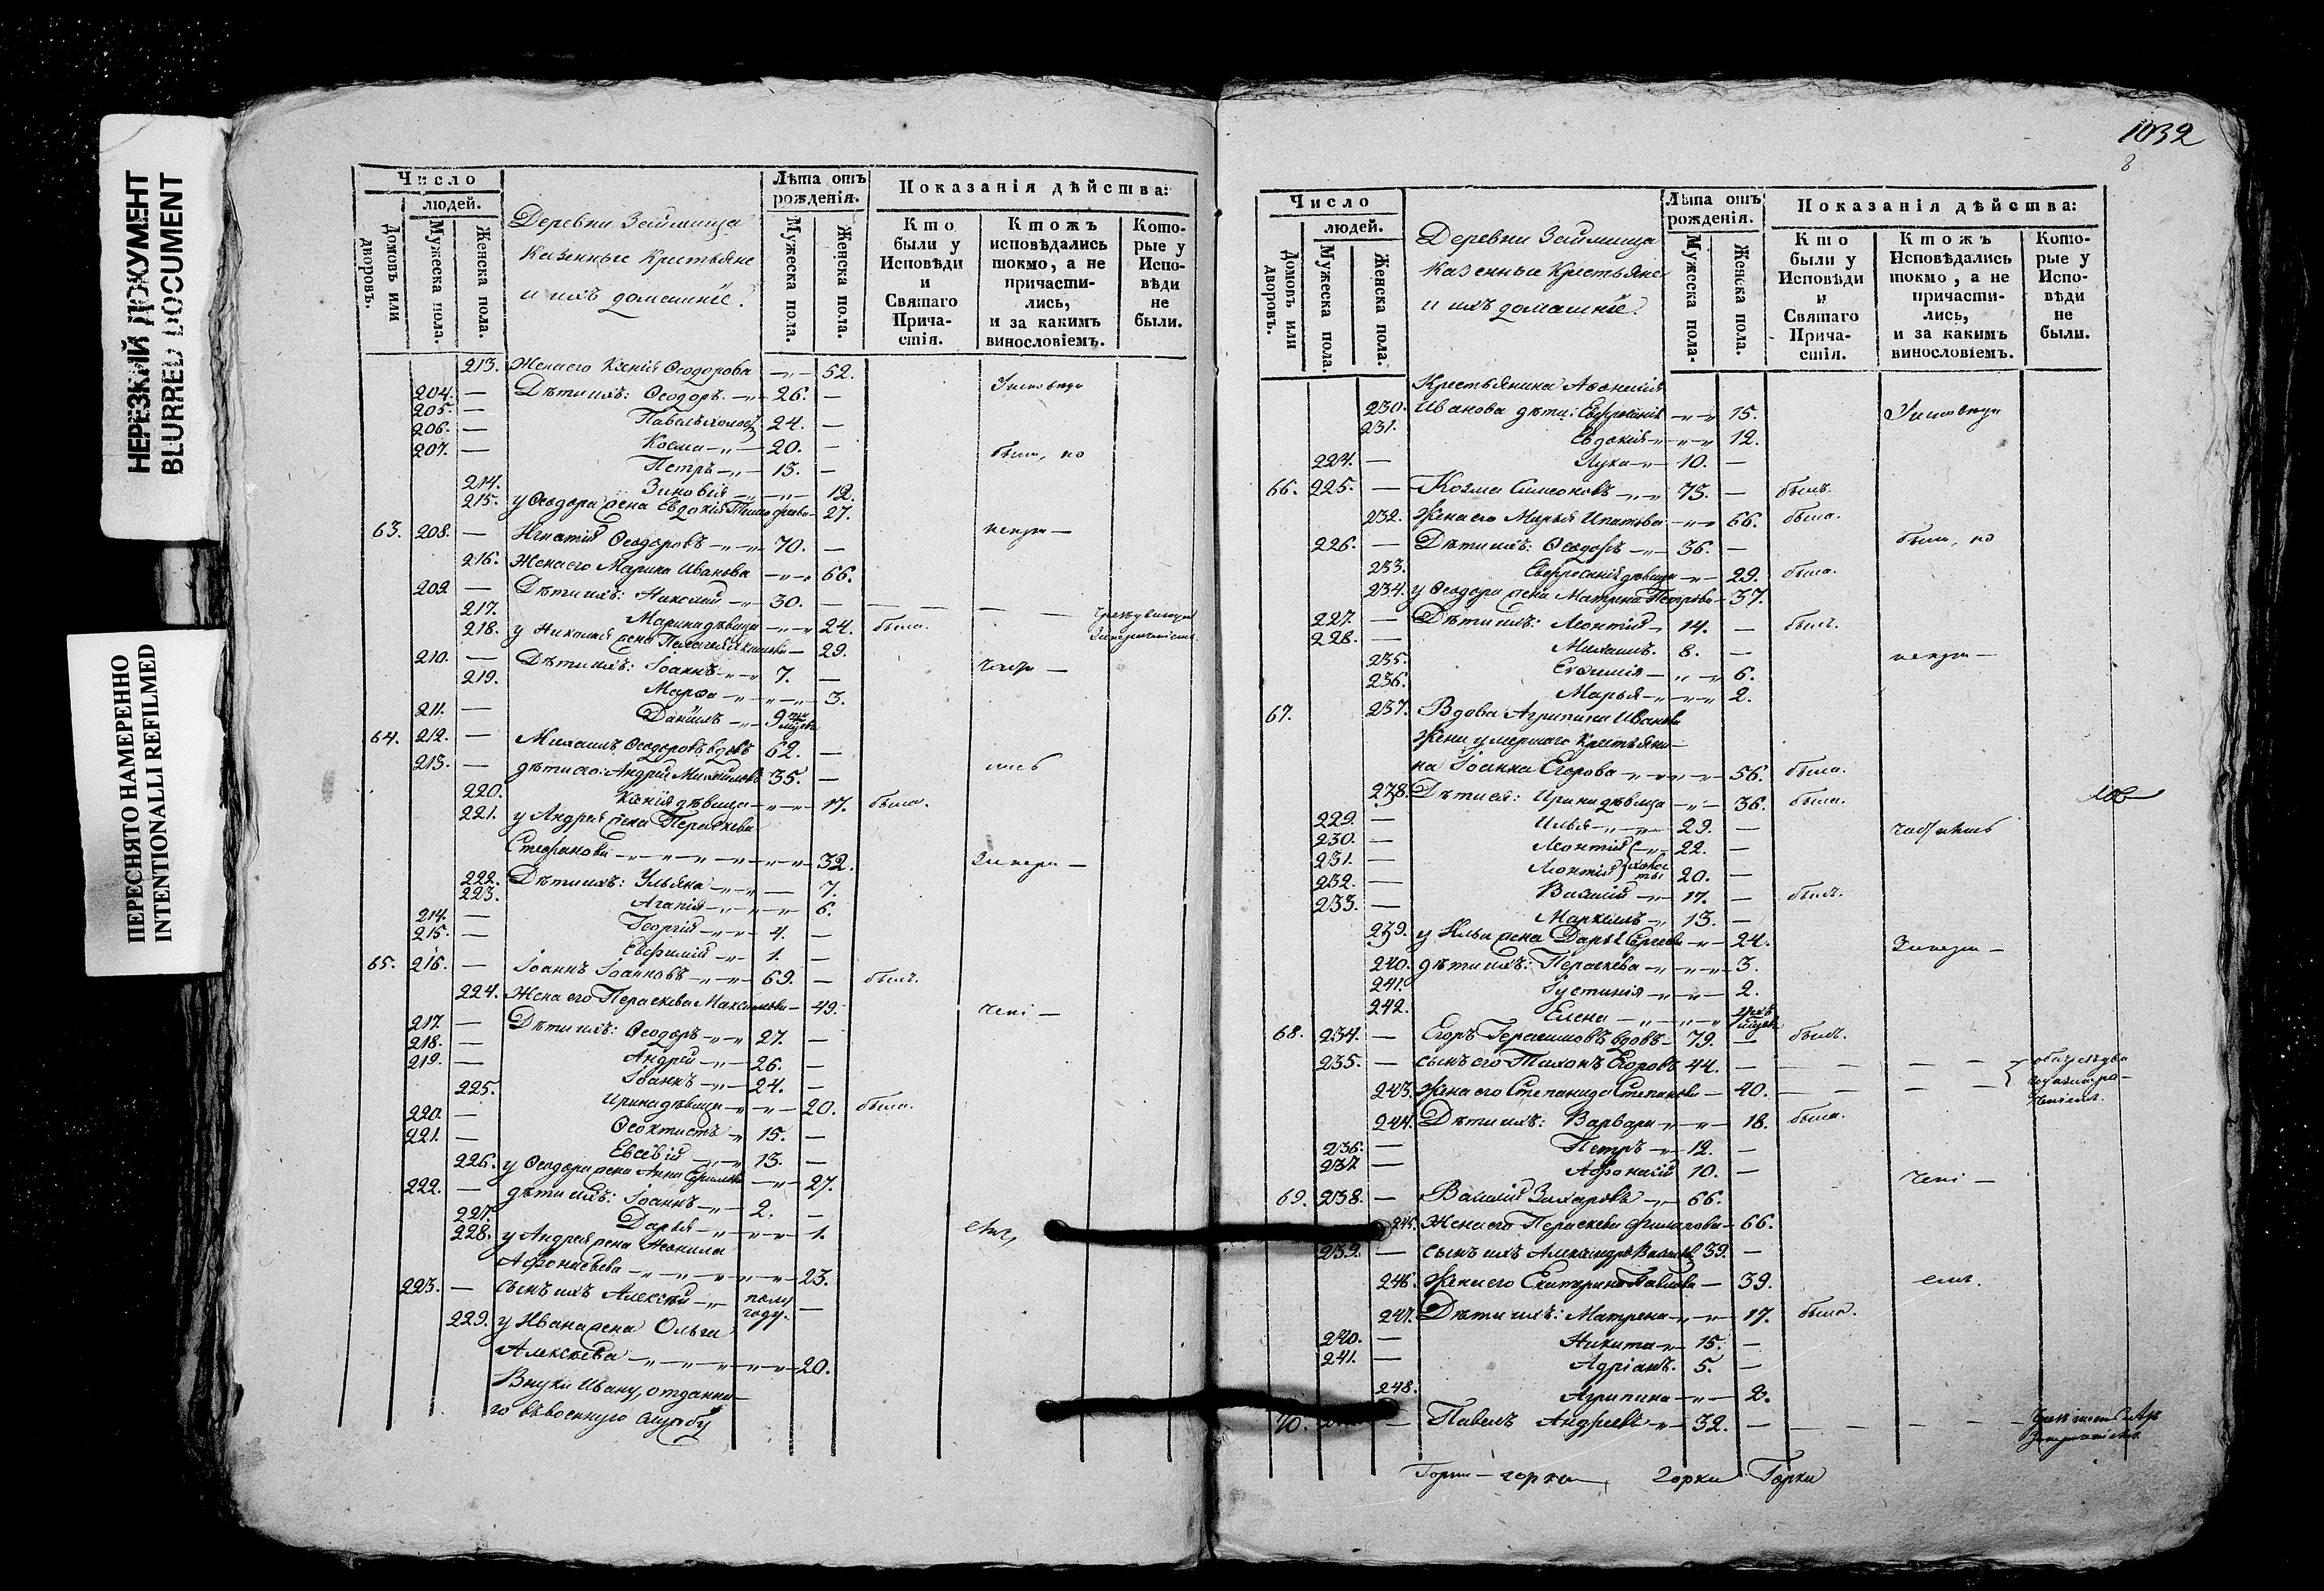 НЕРЕЗКИЙ ДОКУМЕНТ
BLURRED DOCUMENT
ПЕРЕСНЯТО НАМЕРЕННО
INTENTIONALLI REFILMED
Число
людей.
Домовъ или дворовъ.
Мужеска пола.
Женска пола.
Деревни Займища
Казенные Крестьяне
и ихъ домашніе.
Лѣта отъ рожденія.
Мужеска пола.
Женска пола.
Показанія дѣйства:
Кто были у Исповѣди и Святаго Причастія.
Ктожъ исповѣдались токмо, а не причастились, и за какимъ винословіемъ.
Которые у Исповѣди не были.
213. Жена его Ксенія Ѳеодорова — 52.
204. — Дѣти ихъ: Ѳеодоръ — 26. —
205. — Павелъ холост 24. —
206. — Косма — 20. —
207. — Петръ — 13. — были, но
214. Зиновія — 12.
215. у Ѳеодора жена Евдокія — 27.
63. 208. — Игнатій Ѳеодоровъ — 70. —
216. Жена его Марина Иванова — 66.
209 — Дѣти ихъ: Николай — 30. —
217. Марина дѣвица — 24. была.
218. у Николая жена Пелагея — 29.
210. — Дѣти ихъ: Іоаннъ — 7. —
219. Марѳа — 3.
211. — Даніилъ — 9
64. 212. — Михаилъ Ѳеодоровъ вдовъ 62. —
213. — дѣти его: Андрей Михайловъ 35. —
220. Ксенія дѣвица — 17. была.
221. у Андрея жена Параскева
Стефанова — 32.
222. Дѣти ихъ: Ульяна — 7.
223. Агапія — 6.
214. — Георгій — 4. —
215. — Евфимій — 1. —
65. 216. — Іоаннъ Іоанновъ — 69. — былъ.
224. Жена его Параскева Максимова — 49.
217. — Дѣти ихъ: Ѳеодоръ — 27. —
218. — Андрей — 26. —
219. — Іоаннъ — 24. —
225. Ирина дѣвица — 20. была.
220. — Ѳеоктистъ — 15. —
221. — Евсевій — 13. —
226. у Ѳеодора жена Анна — 27.
222. — дѣти ихъ: Іоаннъ — 2. —
227. Дарья — 1.
228. у Андрея жена Неонила
Афонасьева — 23.
223. — сынъ ихъ Алексѣй — полу году. —
229. у Ивана жена Ольга
Алексѣева — 20.
Внуки Ивану, отданна-
го въ военную службу
1032
8
Число
людей.
Домовъ или дворовъ.
Мужеска пола.
Женска пола.
Деревни Займища
Казенные Крестьяне
и ихъ домашніе.
Лѣта отъ рожденія.
Мужеска пола.
Женска пола.
Показанія дѣйства:
Кто были у Исповѣди и Святаго Причастія.
Ктожъ Исповѣдались токмо, а не причастились, и за какимъ винословіемъ.
Которые у Исповѣди не были.
Крестьянина
230. Иванова дѣти: Евфросинія — 15.
231. Евдокія — 12.
224. — Лука — 10. —
66. 225. — Козма Симеоновъ — 73. — былъ.
232. Жена его Марья Ипатова — 66. была.
226. — Дѣти ихъ: Ѳеодоръ — 36. — были, но
233. Евфросинія дѣвица — 29. была.
234. у Ѳеодора жена Матрена Петрова — 37.
227. — Дѣти ихъ: Леонтій — 14. — былъ.
228. — Михаилъ. 8. —
235. Евфимія — 6.
236. Марья — 2.
67. 237. Вдова Агрипина Иванова
жена умершаго Крестьяни-
на Іоанна Егорова — 56. была.
238. Дѣти ея: Ирина дѣвица — 36. была.
229. — Илья — 29. —
230. — Леонтій — 22. —
231. — Леонтій 20. —
232. — Василій — 17. — былъ.
233. — Маркелъ — 13. —
239. у Ильи жена Дарья Сергеева — 24.
240. дѣти ихъ: Параскева — 3.
241. Іустинія — 2.
242. Елена —
68. 234. — Егоръ Герасимовъ вдовъ — 79. — былъ.
235. — сынъ его Тихонъ Егоровъ 44. —
243. Жена его Степанида Степанова — 40.
244. Дѣти ихъ: Варвара — 18. была.
236. — Петръ — 12. —
237. — Афонасій 10. —
69. 238. — Василій Захаровъ — 66.
245. Жена его Параскева Филатова — 66.
239. — сынъ ихъ Александръ 39. —
246. Жена его Екатерина Павлова — 39.
247. Дѣти ихъ: Матрена — 17. была.
240. — Никита — 15. —
241. — Адріанъ. 5. —
248. Агрипина — 2.
70. — Павелъ Андреевъ — 32. —
горки Горки